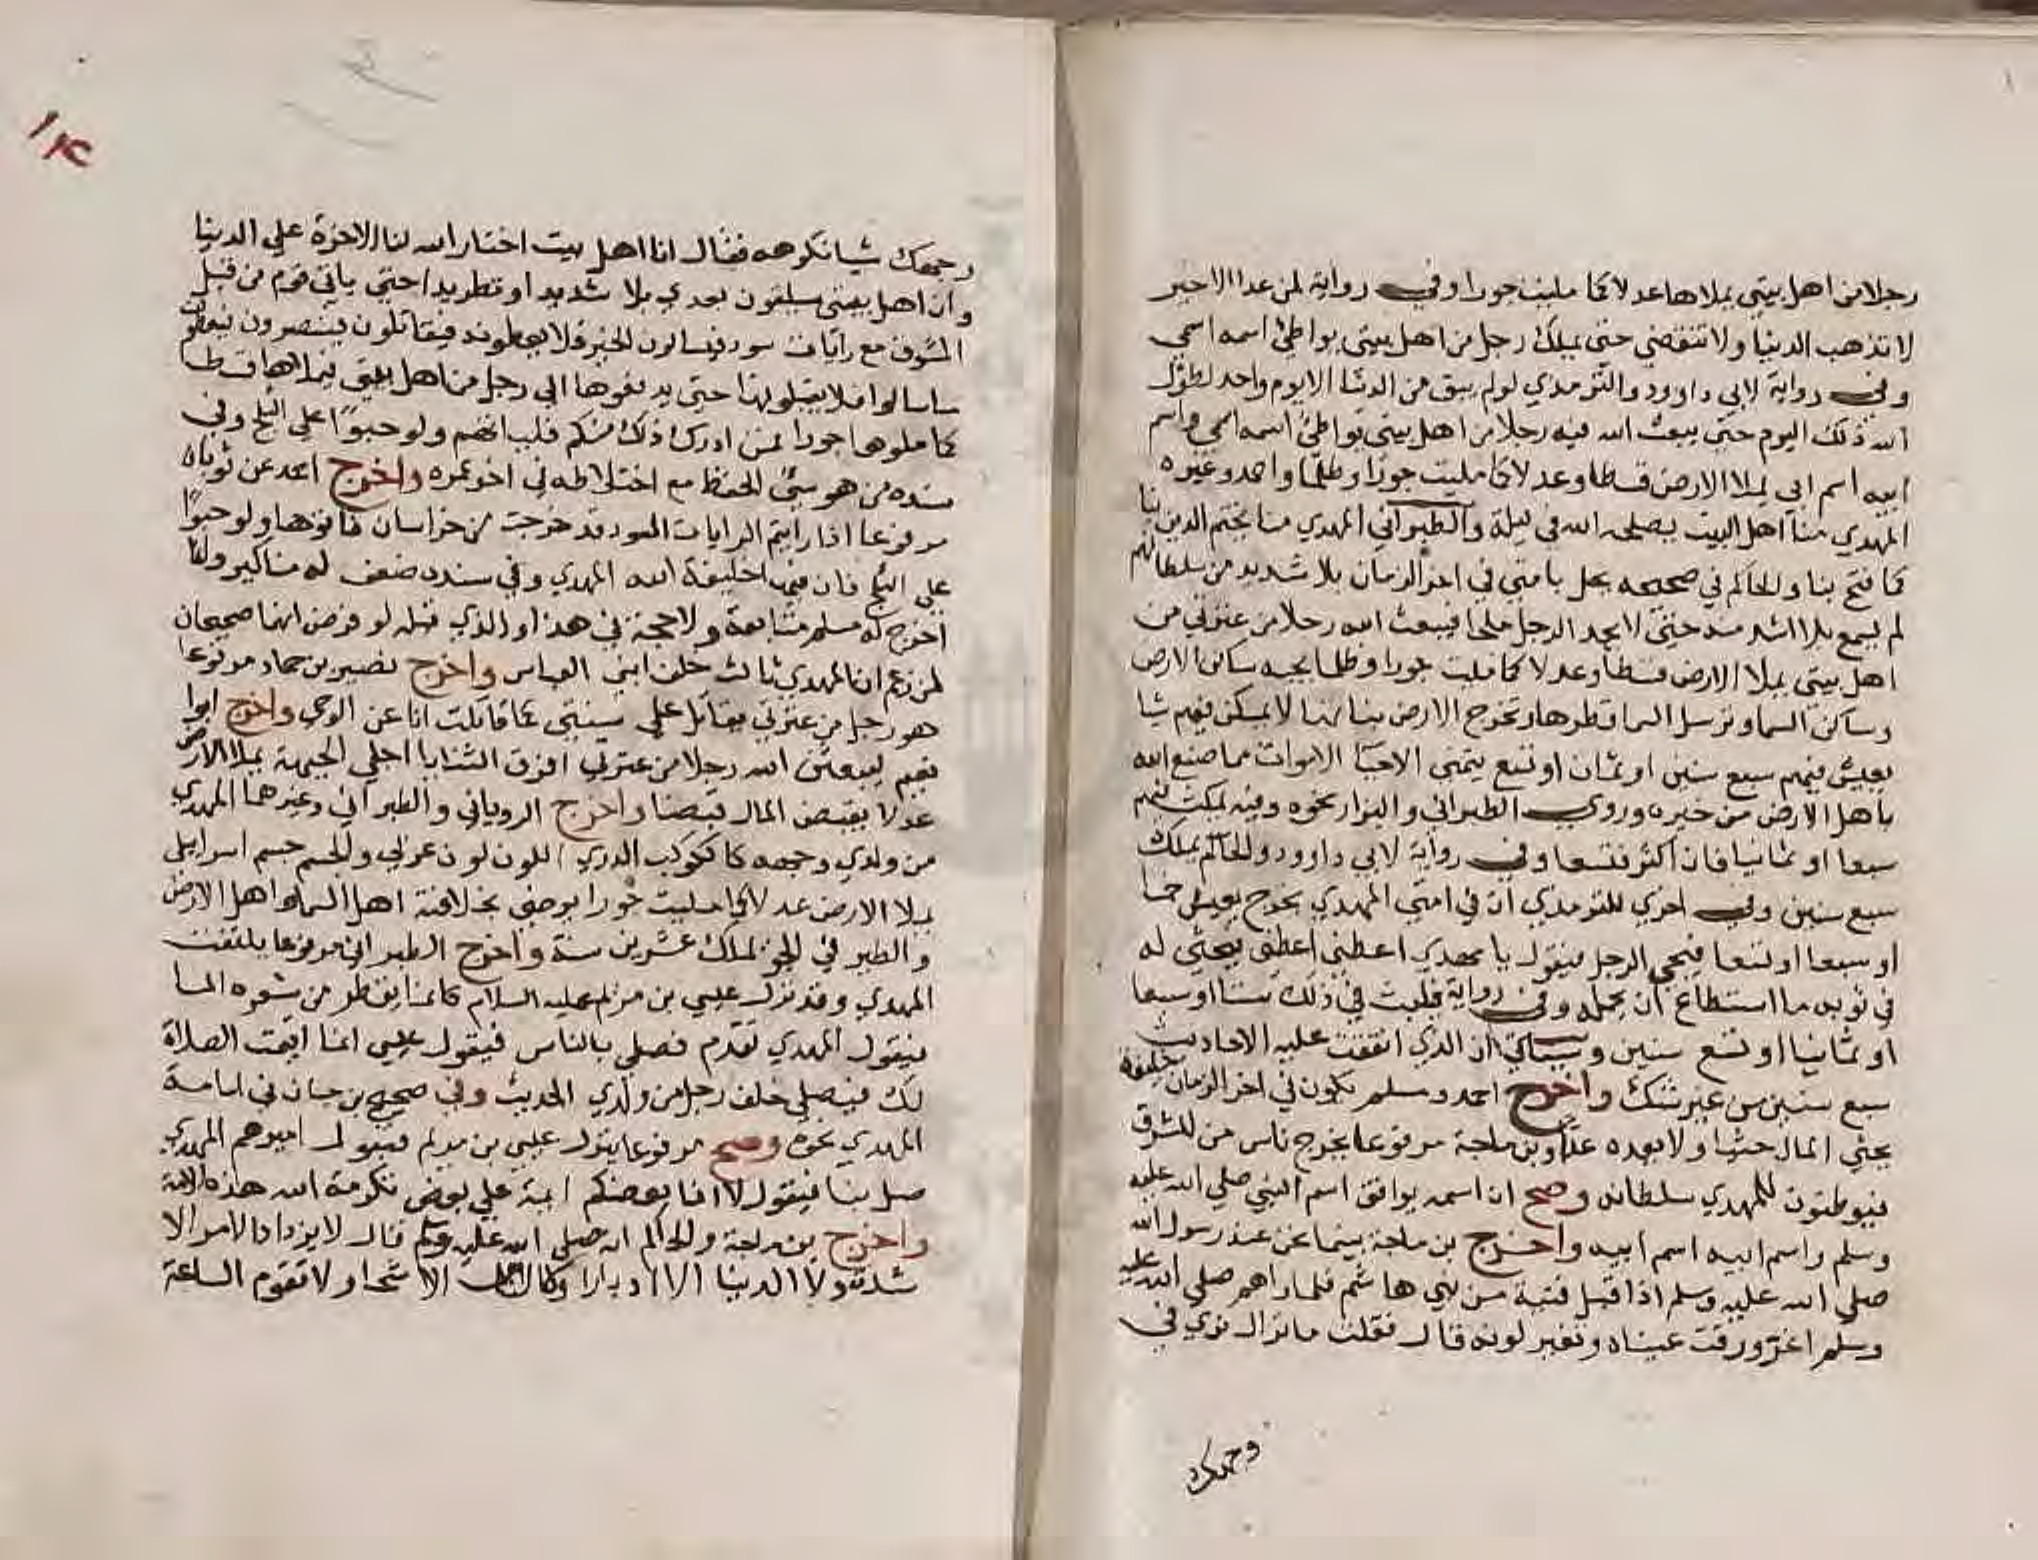 رجلا من اهل بيتي يملاها عدلا كما مليت جورا وفي رواية لمن عدا الاخير
لا تذهب الدنيا ولا تنقضي حتى يملك رجل من اهل بيتي يواطئ اسمه اسمي
وفي رواية لابي داوود والترمذي لو لم يبق من الدنيا الا يوم واحد لطول
الله ذلك اليوم حتى يبعث الله فيه رجلا من اهل بيتي يواطئ اسمه اسمي واسم
ابيه اسم ابي يملا الارض قسطا وعدلا كما مليت جورا وظلما واحمد وغيره
المهدي منا اهل البيت يصلحه الله في ليلة والطبراني المهدي منا يختم الدين بنا
كما فتح بنا والحاكم في صحيحه يحل بامتي في اخر الزمان بلا شديد من سلطانهم
لم يسمع بلا اشد منه حتى لا يجد الرجل ملجا فيبعث الله رجلا من عترتي من
اهل بيتي يملا الارض قسطا وعدلا كما مليت جورا وظلما يحبه ساكن الارض
وساكن السما وترسل السما قطرها وتخرج الارض بناتها لا يمسكن فيهم شيا
يعيش فيهم سبع سنين او ثمان او تسع يتمنى الاحيا الاموات مما صنع الله
باهل الارض من خيره وروي الطبراني والبزار نحوه وفيه يمكث فيهم
سبعا او ثمانيا فان اكثر فتسعا وفي رواية لابي داوود والحاكم يملك
سبع سنين وفي اخري للترمذي ان في امتي المهدي يخرج يعيش خمسا
او سبعا او تسعا فيجي الرجل فيقول يا مهدي اعطني اعطني فيحثي له
في ثوبه ما استطاع ان يحمله وفي رواية فلبث في ذلك ستا او سبعا
او ثمانيا او تسع سنين وسياتي ان الذي اتفقت عليه الاحاديث
سبع سنين من غير شك واخرج احمد ومسلم يكون في اخر الزمان خليفة
يحثي المال حثيا ولا يعده عدا وبن ماجة مرفوعا يخرج ناس من المشرق
فيوطئون للمهدي سلطانه وصح ان اسمه يوافق اسم النبي صلي الله عليه
وسلم واسم ابيه اسم ابيه واخرج بن ماجة بينما نحن عند رسول الله
صلي الله عليه وسلم اذ اقبل فتية من بني هاشم فلما راهم صلي الله عليه
وسلم اغرورقت عيناه وتغير لونه قال فقلت ما نزال نري في
وجهك
١٢٤
وجهك شيا نكرهه فقال انا اهل بيت اختار الله لنا الاخرة علي الدنيا
وان اهل بيتي سيلقون بعدي بلا شديدا وتطريدا حتى ياتي قوم من قبل
المشرق مع رايات سود فيسالون الخير فلا يعطونه فيقاتلون فينصرون فيعطون
ما سالوا فلا يقبلونها حتى يدفعوها الي رجل من اهل بيتي فيملاها قسطا
كما ملوها جورا فمن ادرك ذلك منكم فلياتهم ولو حبوا على الثلج وفي
سنده من هو سئ الحفظ مع اختلاطه في اخر عمره واخرج احمد عن ثوبان
مرفوعا اذا رايتم الرايات السود قد خرجت من خراسان فاتوها ولو حبوا
علي الثلج فان فيها خليفة الله المهدي وفي سنده ضعف له مناكير وانما
اخرج له مسلم متابعة ولا حجة في هذا والذي قبله لو فرض انهما صحيحان
لمن زعم ان المهدي ثالث خلفا بني العباس واخرج نصير بن حماد مرفوعا
هو رجل من عترتي يقاتل علي سنتي كما قاتلت انا عن الوحي واخرج ابوا
نعيم ليبعثن الله رجلا من عترتي افرق الثنايا اجلي الجبهة يملا الارض
عدلا يفيض المال فيضا واخرج الروياني والطبراني وغيرهما المهدي
من ولدي وجهه كالكوكب الدري اللون لون عربي والجسم جسم اسراييلي
يملا الارض عدلا كما مليت جورا يرضي بخلافته اهل السما واهل الارض
والطير في الجو يملك عشرين سنة واخرج الطبراني مرفوعا يلتفت
المهدي وقد نزل عيسي بن مريم عليه السلام كانما يقطر من شعره الما
فيقول المهدي تقدم فصلي بالناس فيقول عيسي انما اقيمت الصلاة
لك فيصلي خلف رجل من ولدي الحديث وفي صحيح بن حبان في امامة
المهدي نحوه وصح مرفوعا ينزل عيسي بن مريم فيقول اميرهم المهدي
صل بنا فيقول لا انما بعضكم ايمة علي بعض تكرمة الله هذه الامة
واخرج بن ماجة والحاكم انه صلي الله عليه وسلم قال لا يزداد الامر الا
شدة ولا الدنيا الا ادبارا ولا الناس الا شحا ولا تقوم الساعة